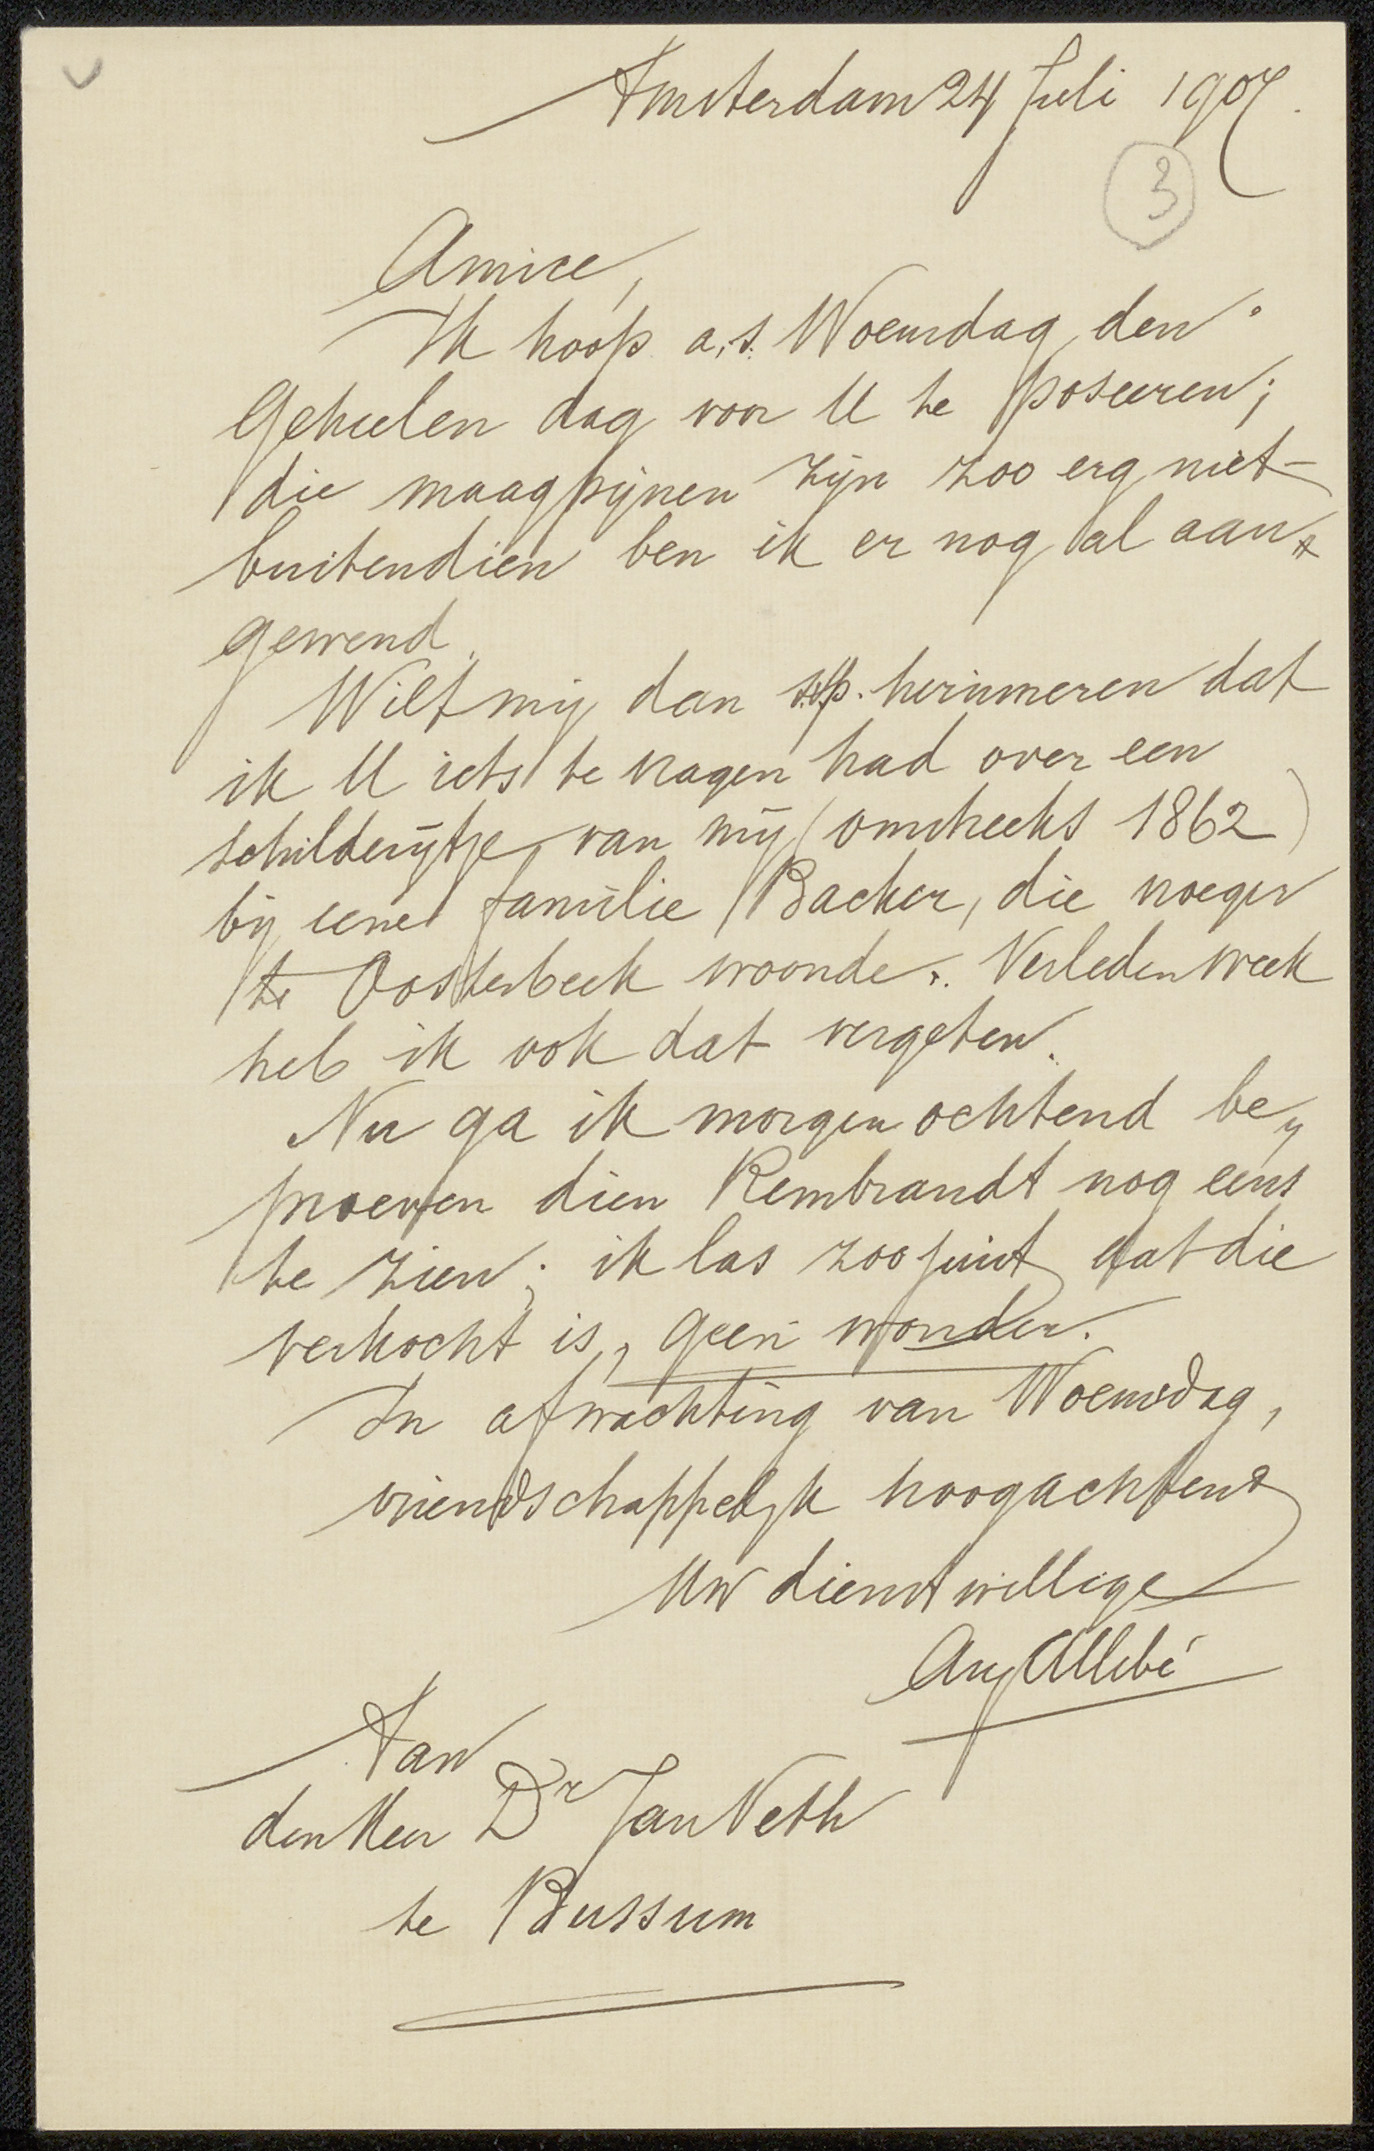 Amsterdam 24 Juli 1907.
3
Amice,
Ik hoop a.s. Woensdag den
geheelen dag voor U te poseeren;
die maagpijnen zijn zoo erg niet
buitendien ben ik er nog al aan
gewend.
Wilt mij dan s.v.p. herinneren dat
ik U iets te vragen had over een
schilderijtje van mij (omstreeks 1862)
bij eene familie Backer, die vroeger
te Oosterbeek woonde. Verleden week
heb ik ook dat vergeten.
Nu ga ik morgen ochtend be„
proeven dien Rembrandt nog eens
te zien; ik las zoo juist dat die
verkocht is, geen wonder.
In afwachting van Woensdag,
vriendschappelijk hoogachtend
Uw dienstwillige
Aug Allebé
Aan
den Heer Dr Jan Veth
te Bussum